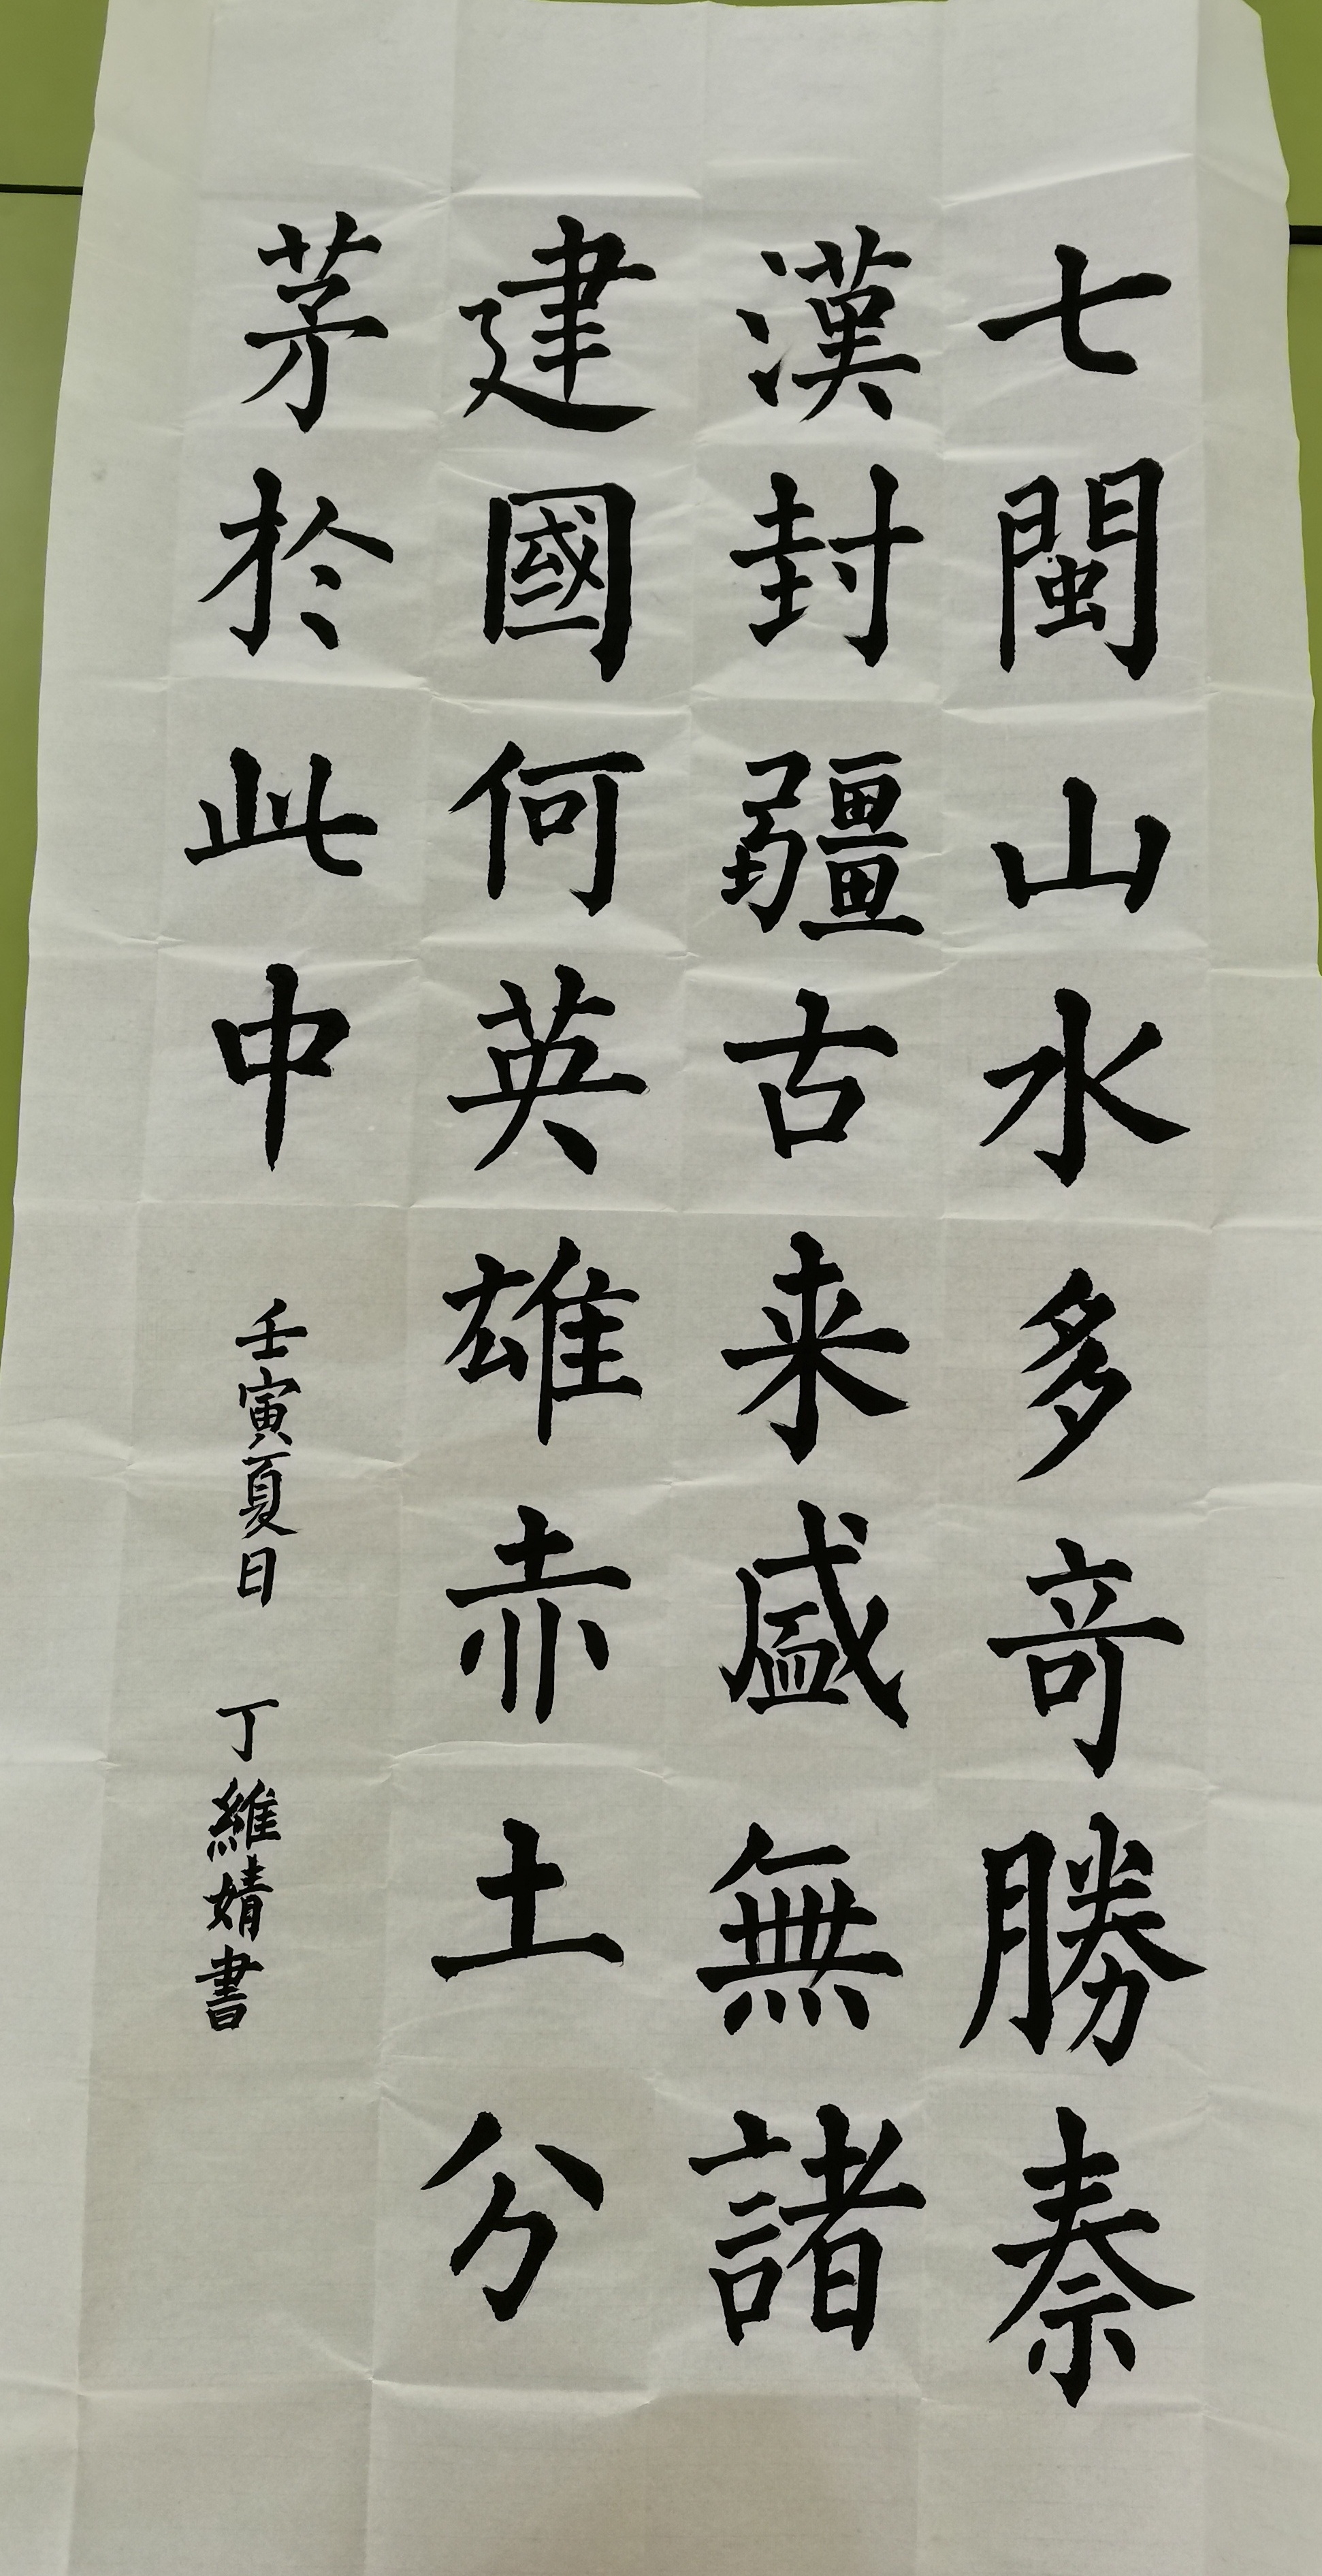 七閩山水多竒勝秦
漢封疆古来盛無諸
建國何英雄赤土分
茅於此中
壬寅夏日 丁維婧書